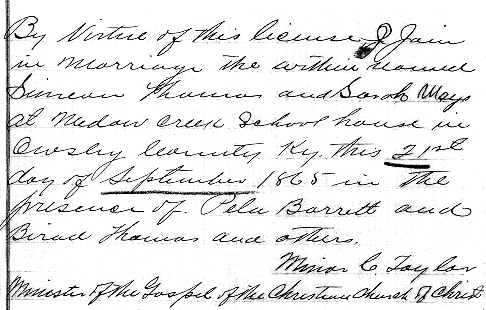 By Virtue of this license I Join
in Marriage the within named
Simeon Thomas and Sarah Mays
at Medow Creek School house in
Owsley County Ky. this 21st
day of September 1865 in the
presence of. Pelu Barrett and
Birad Thomas and others.
Minor C. Taylor
Minister of the Gospel of the Christian Church of Christ